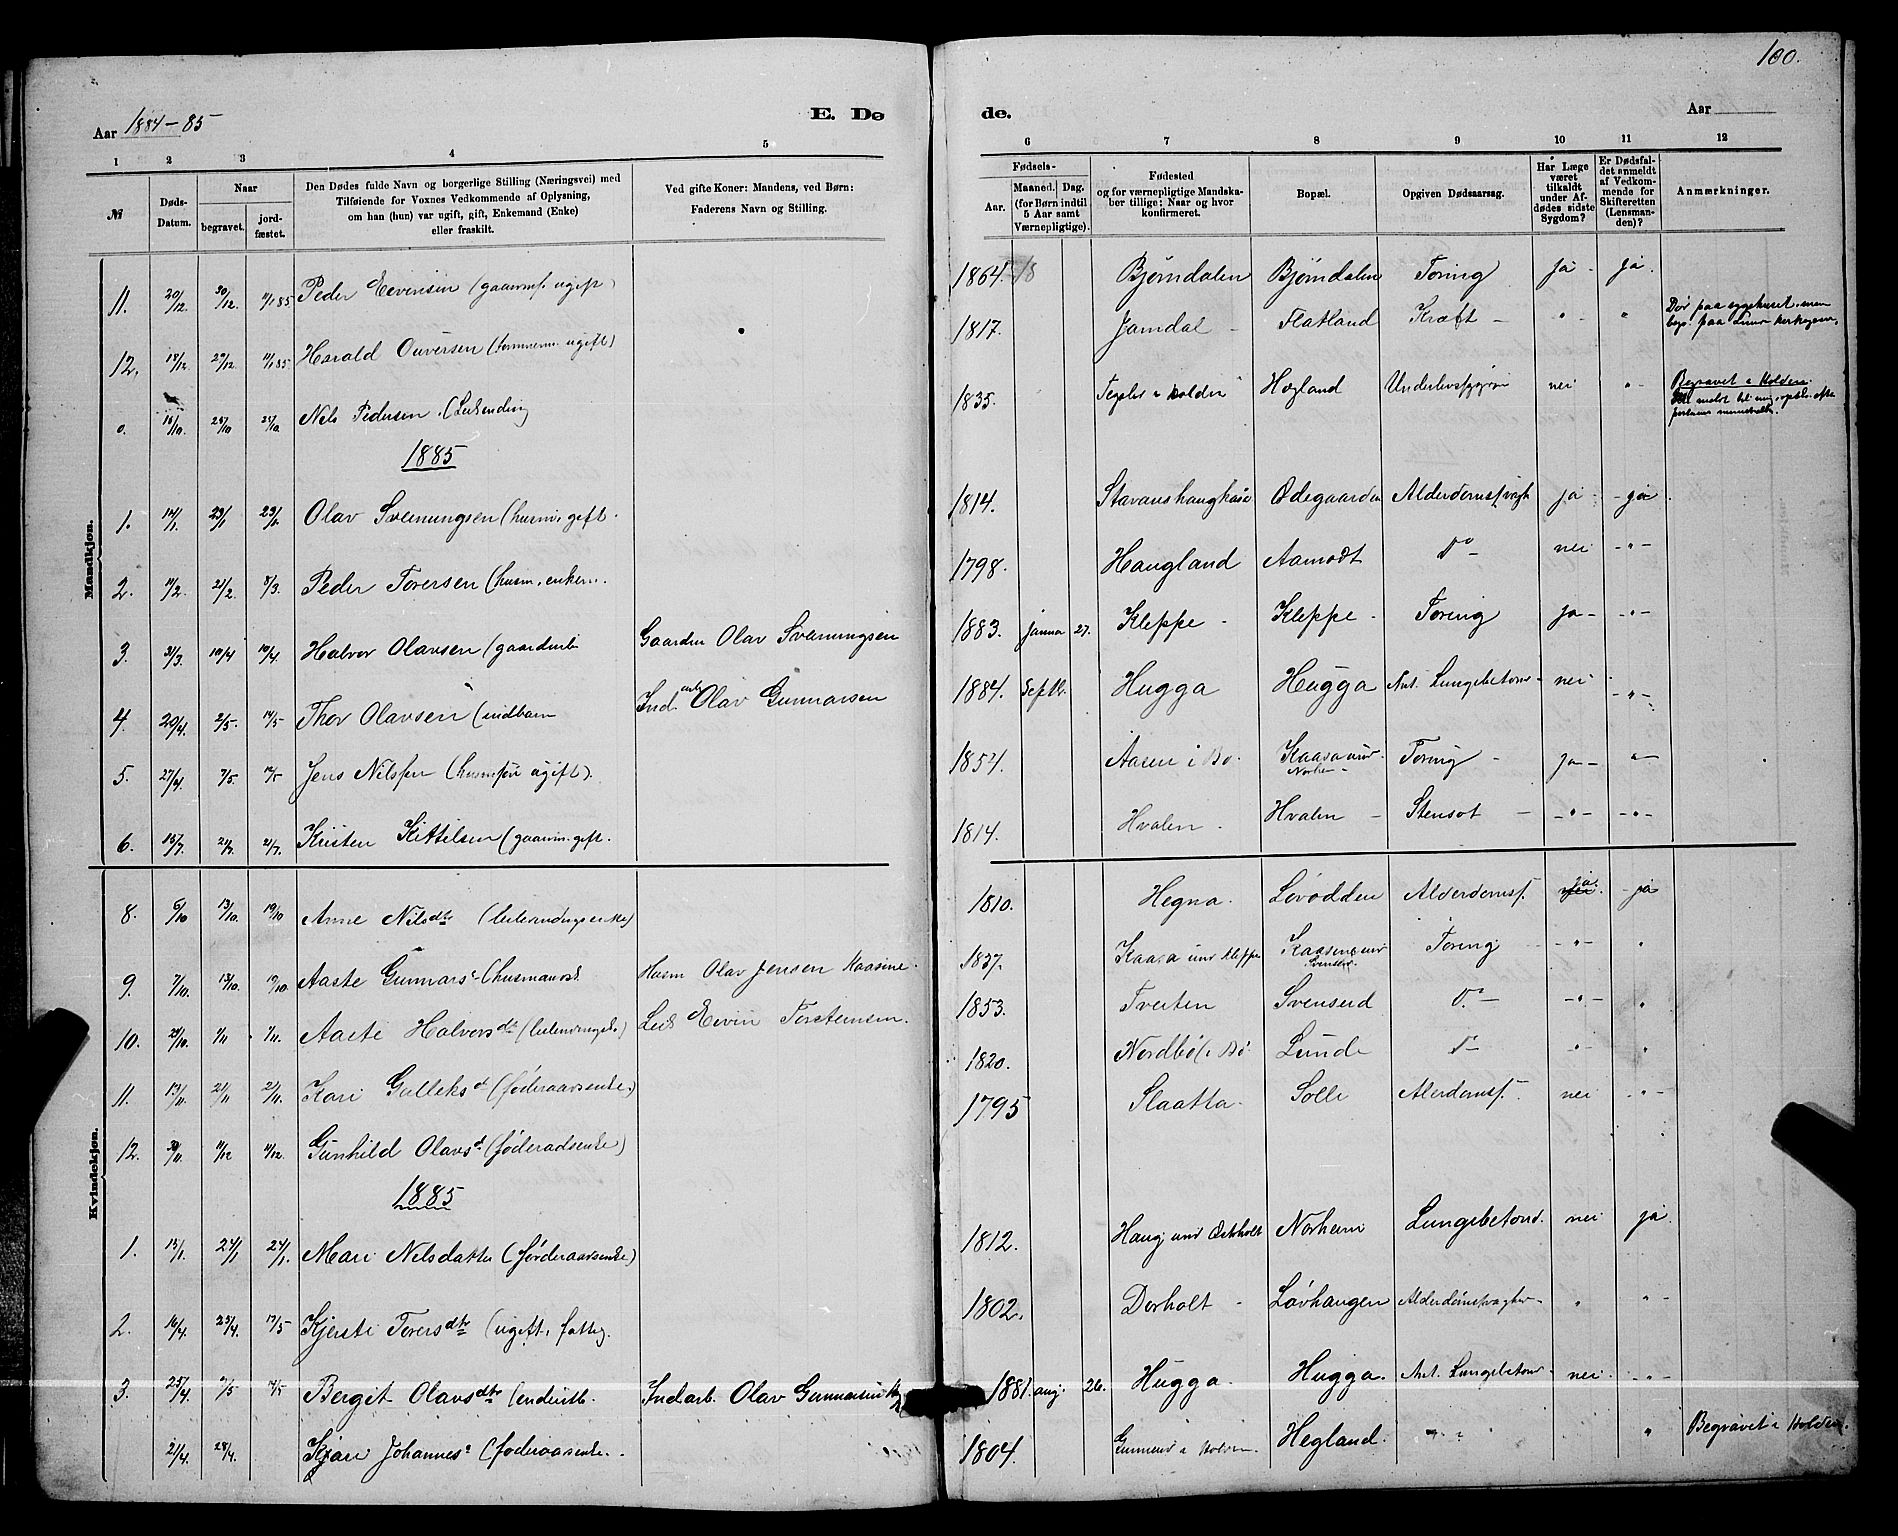 100.
Aar 1884-85
E. Dø
de.
Aar
1 2 3 4 5
6 7 8 9 10 11 12
№
Døds-Datum.
Naar
begravet.
jord-fæstet.
Den Dødes fulde Navn og borgerlige Stilling (Næringsvei) med
Tilføiende for Voxnes Vedkommende af Oplysning,
om han (hun) var ugift, gift, Enkemand (Enke)
eller fraskilt.
Ved gifte Koner: Mandens, ved Børn:
Faderens Navn og Stilling.
Fødsels-
Aar.
Maaned. Dag.
(for Børn indtil
5 Aar samt
Værnepligtige).
Fødested
og for værnepligtige Mandska-
ber tillige: Naar og hvor
konfirmeret.
Bopæl.
Opgiven Dødsaarsag.
Har Læge
været
tilkaldt
under Af-
dødes sidste
Sygdom?
Er Dødsfal-
det anmeldt
af Vedkom-
mende for
Skifteretten
(Lensman-
den)?
Anmærkninger.
Mandkjøn.
11. 20/12 30/12 11/1 85 Peder Eevinsen (gaarmf. ugift) 1864. Bjørndalen Bjørndalen Toring ja - ja.
12. 18/12 29/12 11/1 85 Harald Ouversen ( ugift) 1817. Jamdal - Flatland Kræft - " - " Dør paa sygehuset, men
begr. paa Lunde kirkegaar.
0. 16/10 25/10 27/10. Nils Pedersen. (Leilending 1835. i Holden Hogland nei " - Begravet i Holden.
1885
1. 14/1. 23/1 23/1. Olav Svenungsen (husm, gift. 1814. Ødegaarden ja - ja.
2. 11/2. 21/2. 8/3. Peder Torersen (husm, enkem. 1798. Haugland Aamodt Do - nei - " -
3. 31/3. 10/4 10/4. Halvor Olavsen (gaardmb Gaardm Olav Svenungsen 1883. janua 27. Kleppe - Kleppe - Toring ja - - " -
4. 20/4. 2/5. 14/5 Thor Olavsen (indbarn Ind. arb Olav Gunnarsen 1884. Septbr. Hugga Hugga Ant. Lungebetænd - nei - " -
5. 27/4 7/5. 14/5 Jens Nilssen (husmsøn ugift). 1854. Aasen i Bø. Kaasa und. Norhem - Toring - ja - - " -
6. 15/7. 21/7. 21/7. Kristen Kittilsen (gaarm. gift. 1814. Hvalen - Hvalen - Stensot - - " - - " -
Kvindekjøn.
8. 6/10 13/10. 19/10 Anne Nilsdtr (leilendingsenke) 1810. Hegna. Løvodden Alderdomsf. ja. - ja
9. 7/10. 13/10. 19/10. Aaste Gunnars. (husmansk. Husm Olav Jensen Kaasine. 1837. Kaasa und Kleppe Kaasene und Svenserd. Toring - " - "
10. 28/10. 1/11 1/11. Aaste Halvorsdtr (leilendingsk.) Leil Eevin Torstensen. 1853. Tveiten Svenserd Do - - " - "
11. 13/11. 21/11 21/11. Kari Gulleksd (føderaadsenke.) 1820. Nordbø i Bø. Lunde Do - " - "
12. 30/11. 11/12 11/12. Gunhild Olavsd. (føderadsenke) 1795 Slaatta. Solli Alderdomsf. nei - " -
1885
1. 15/1. 24/1 24/1. Mari Nilsdatter (føderaadsenke) 1812. Haug und Østholt Norhem Lungebetænd. nei ja.
2. 16/4. 23/4. 17/5 Kjersti Torersdtr (ugift, fattig. 1802. Dorholt - Løvhaugen - " " -
3. 25/4. 7/5 14/5 Berget Olavsdtr (inderstb. Indarb. Olav Gunnarsen Hugga 1881. aug. 26. Hugga. Hugga. Ant. Lungebetænd - nei - " -
21/4. 28/4. Kjari Johannesd (føderaadsenke. - 1804. i Holden Hegland. " " " Begravet i Holden.